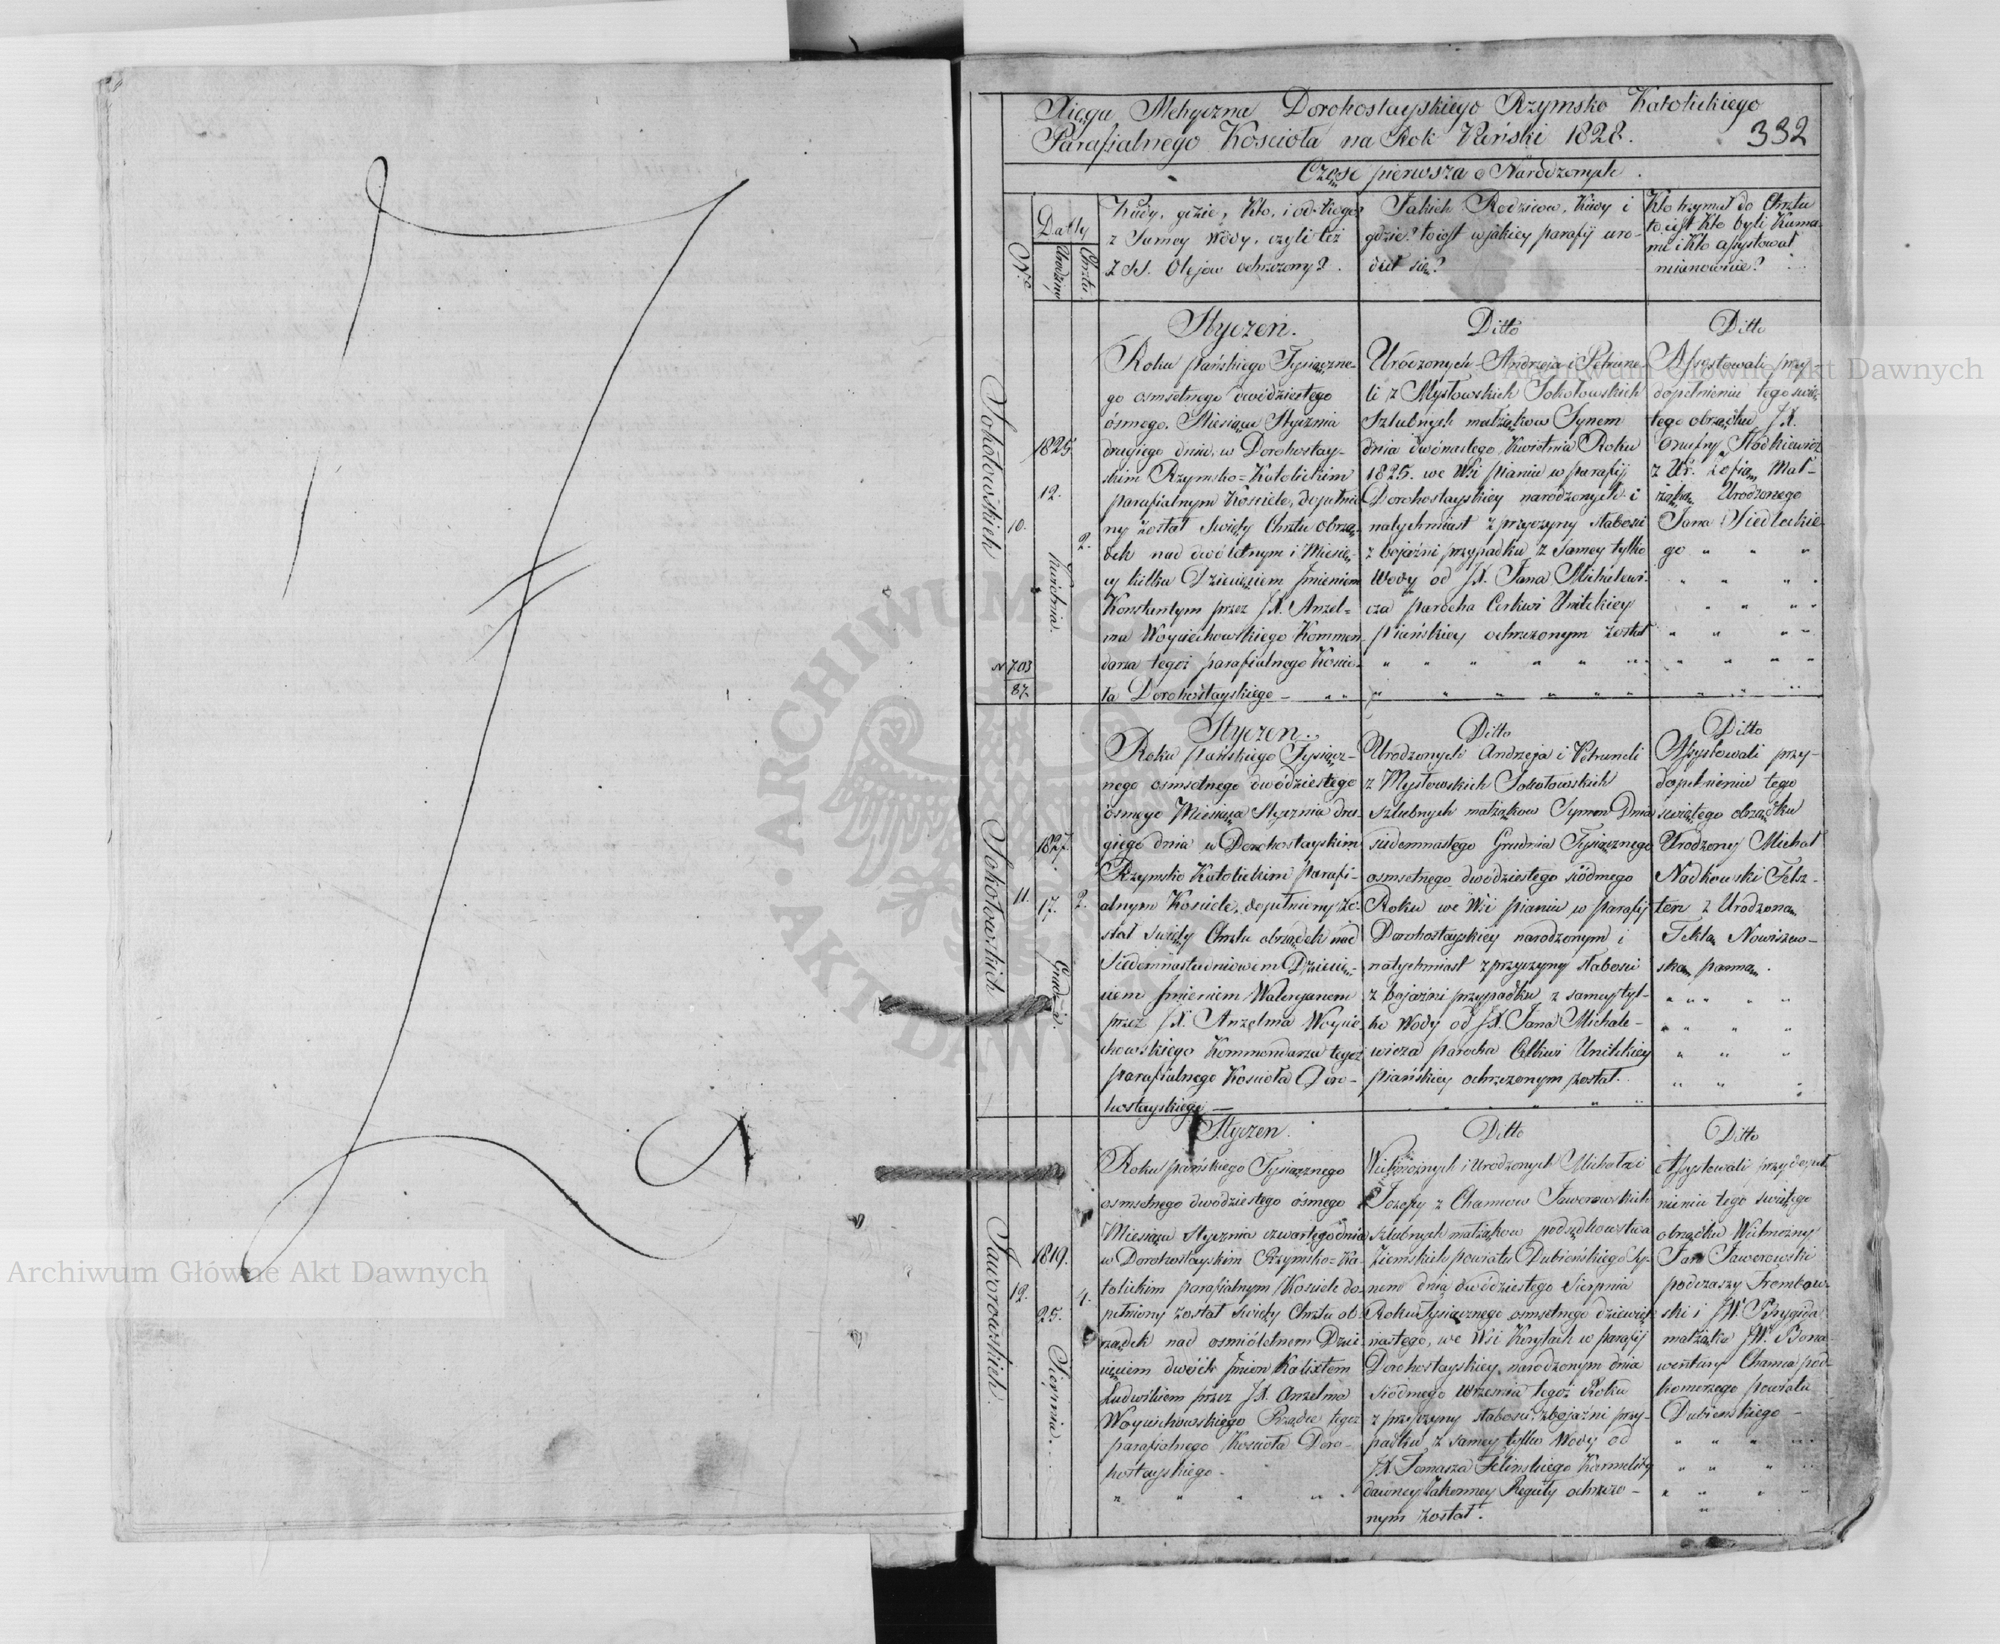 Xięga Metryczna Dorohostayskiego Rzymsko Katolickiego
Parafialnego Kościoła na Rok Ruski 1828.
332
Część pierwsza o Narodzonych.
No
Datty
Urodzin
Chrztu
Kiedy, gdzie, Kto, i od kogo
z Samey Wody, czyli też
z SS. Olejow ochrzczony?
Jakich Rodziców, Kiedy i
gdzie? to iest w jakiey parafij uro-
dził się?
Kto trzymał do Chrztu
to iest Kto byli Kuma-
mi i Kto assystował
mianowicie?
Sokołowskich
10.
1825
12.
Kwietnia.
2.
N 703
87.
Styczeń.
Roku pańskiego Tysiączne-
go osmsetnego dwódziestego
ósmego. Miesiąca Stycznia
drugiego dnia, w Dorohostay-
skim Rzymsko=Katolickim
parafialnym Kościele, dopełnio
ny został Swięty Chrztu obrzą-
dek nad dwóletnym i Miesię-
cy kilku Dziecięciem Jmieniem
Konstantym przez JX. Anzel-
ma Woyciechowskiego Kommen
darza tegoż parafialnego Kościo-
ła Dorohostayskiego
Ditto
Urodzonych Andrzeja i Petrune
li z Mysłowskich Sokołowskich
Szlubnych małżąkow Synem
dnia dwónastego Kwietnia Roku
1825. we Wsi Pianiu w parafij
Dorohostayskiey narodzonych i
natychmiast z przyczyny słabości
z bojaźni przypadku z Samey tylko
Wody od JX. Jana Michalewi-
cza parocha Cerkwi Unitskiey
Piańskiey ochrzczonym został
Ditto
Assystowali przy
dopełnieniu tego świę-
tego obrządku JX.
Onufry Hodkiewicz
z Ur. Zofią Mał-
żąką Urodzonego
Jana Siedleckie-
go
Sokołowskich
11.
1827.
17.
Grud-ia.
2.
Styczen.
Roku Pańskiego Tysiącz-
nego osmsetnego dwódziestego
ósmego Miesiąca Stycznia dru-
giego dnia w Dorohostayskim
Rzymsko Katolickim Parafi-
alnym Kościele, dopełniony zo-
stał Swięty Chrztu obrządek nad
Siedemnastudniowem Dziecię-
ciem Jmieniem Waleryanem
przez JX. Anzelma Woycie-
chowskiego Kommendarza tegoż
parafialnego Kościoła Doro-
hostayskiego
Ditto
Urodzonych Andrzeja i Petruneli
z Mysłowskich Sokołowskich
szlubnych małżąkow Synem Dnia
siedemnastego Grudnia Tysiącznego
osmsetnego dwódziestego siódmego
Roku we Wsi Pianiu w Parafij
Dorohostayskiey narodzonym i
natychmiast z przyczyny słabości
z bojaźni przypadku z samey tyl-
ko Wody od JX. Jana Michale-
wicza parocha Cerkwi Unitskiey
Piańskiey ochrzczonym został.
Ditto
Assystowali przy-
dopełnieniu tego
swiętego obrządku
Urodzony Michał
Nadkowski Felsz-
ter z Urodzoną
Teklą Nowiszew-
ską panną.
Jaworowskich.
12.
1819.
25.
Sierpnia.
4.
Styczen.
Roku pańskiego Tysiącznego
osmsetnego dwódziestego ósmego
Miesiąca Stycznia czwartego dnia
w Dorohostayskim Rzymsko=Ka
tolickim parafialnym Kościele do
pełniony został Swięty Chrztu ob
rządek nad osmióletnem Dzie
cięciem dwóch Jmion Kalixtem
Ludwikiem przez JX. Anzelma
Woyciechowskiego Rządce tegoż
parafialnego Kościoła Doro-
hostayskiego.
Ditto
Wielmożnych i Urodzonych Michała i
Jozefy z Chamcow Jaworowskich
szlubnych małżąkow podsędkowstwa
Ziemskich powiatu Dubieńskiego Sy-
nem dnia dwódziestego Sierpnia
Roku Tysiącznego osmsetnego dziewięt
nastego, we Wsi Korytach w parafij
Dorohostayskiey narodzonym dnia
siódmego Wrzesnia tegoż Roku
z przyczyny słabości z bojaźni przy-
padku z samey tylko Wody od
JX. Tomasza Felinskiego Karmelity
dawney Zakonney Reguły ochrzczo-
nym został.
Ditto
Assystowali przy dopeł
nieniu tego Swiętego
obrządku Wielmożny
Jan Jaworowski
podczaszy Trembow-
ski i JW. Brygida
małżąka JW. Bona-
wentury Chamca pod-
komorzego powiatu
Dubienskiego
Archiwum Główne Akt Dawnych
Archiwum Główne Akt Dawnych
ARCHIWUM GŁÓWNE AKT DAWNYCH